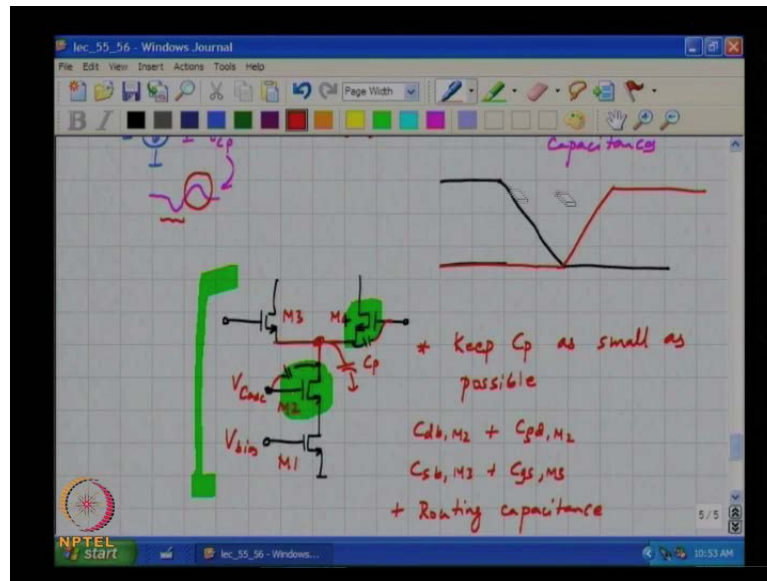 lec_55_56 - Windows Journal
File Edit View Insert Actions Tools Help
Page Width
B I
Capacitances
M3
M4
Cp
VCasc
M2
Vbias
M1
* Keep Cp as small as
possible
Cdb,M2 + Cgd,M2
Csb,M3 + Cgs,M3
+ Routing capacitance
5/5
NPTEL
start
lec_55_56 - Windows...
10:53 AM